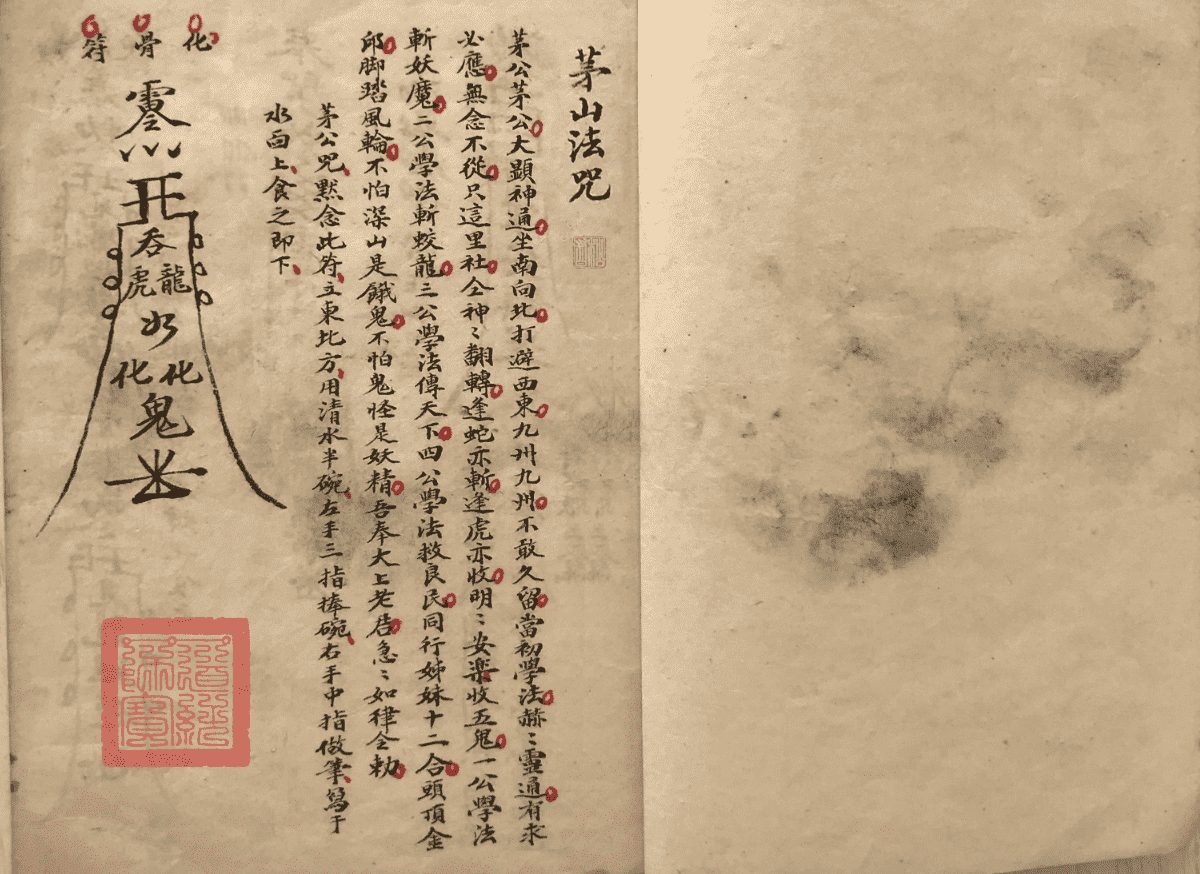 茅山法咒
茅公茅公大顯神通坐南向北打避西東九州九州不敢久留當初學法赫〻靈通有求
必應無念不從只這里社仝神〻翻轉逢蛇亦斬逢虎亦收明〻安樂收五鬼一公學法
斬妖魔二公學法斬蛟龍三公學法傳天下四公學法救良民同行姊妹十二合頭頂金
邱脚踏風輪不怕深山是餓鬼不怕鬼怪是妖精吾奉大上老君急〻如律令勅
茅公咒默念此符立東北方用清水半碗左手三指捧碗右手中指做筆寫于
水面上食之即下
化骨符
吞
龍虎
化化
鬼
道經師寶